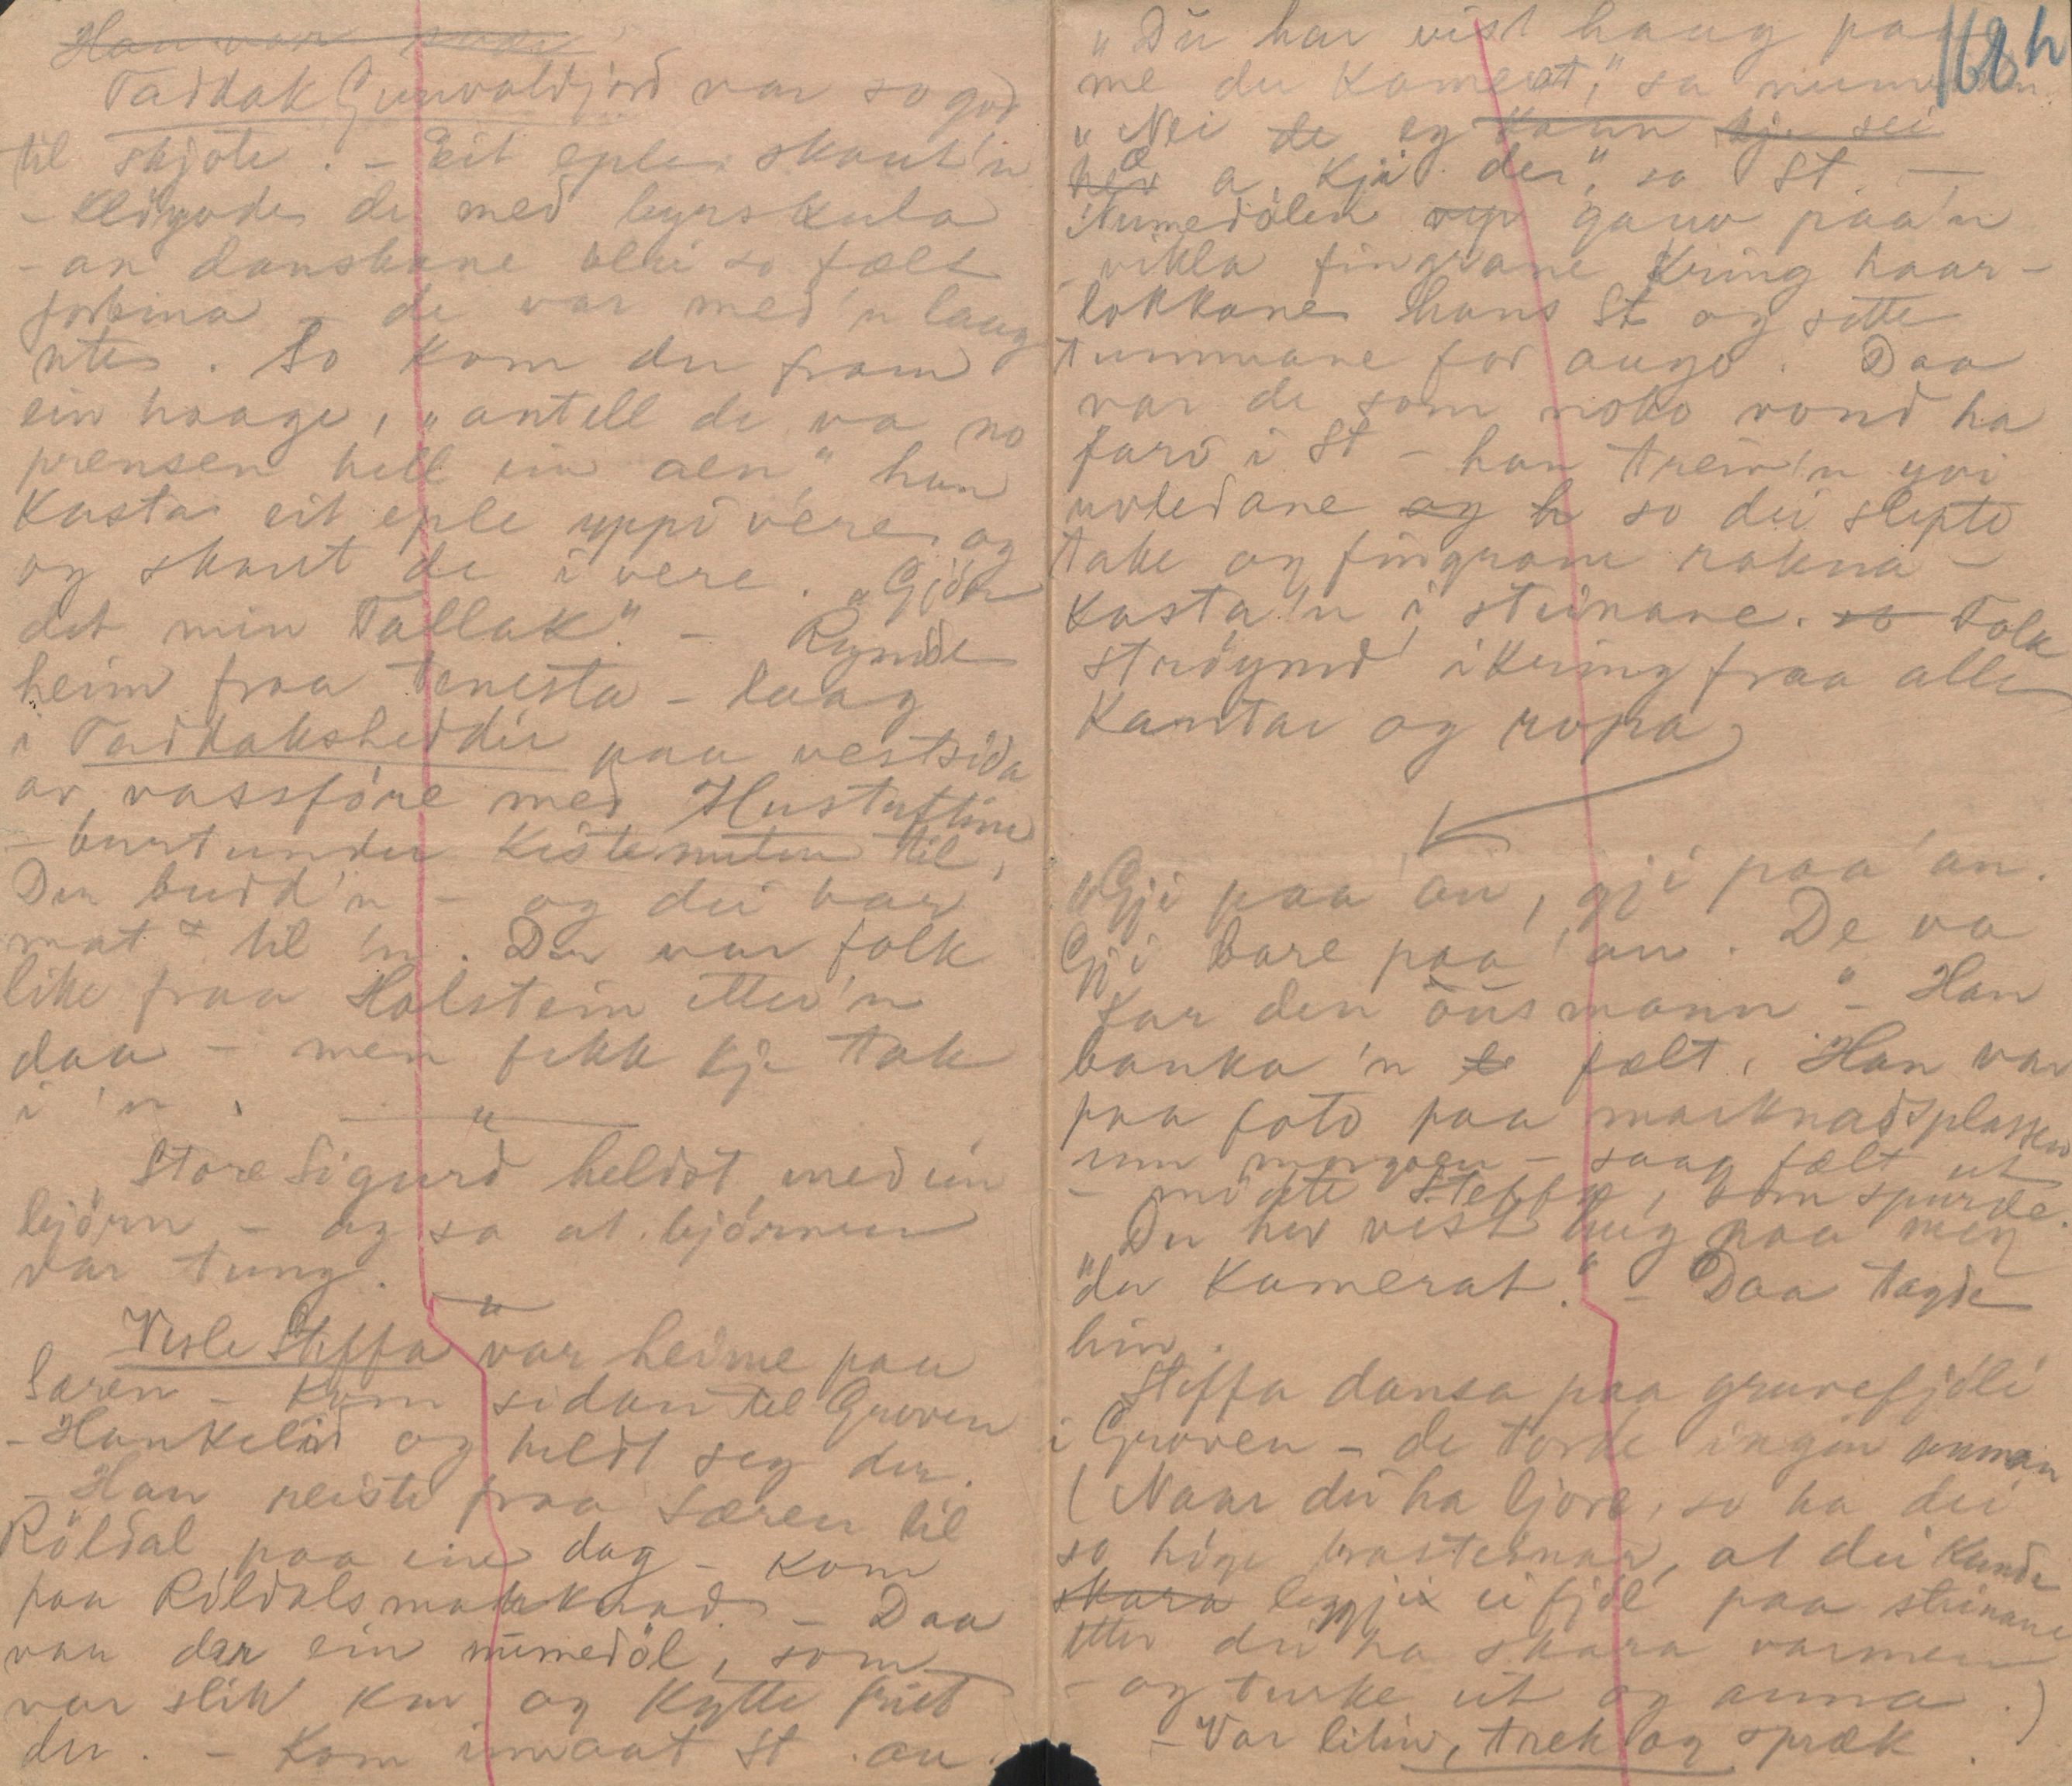 Han var
Taddak Gunvaldjord var so god
til skjote. - Eit eple skaut'n
- kløyvde de med byrsekula
- an danskane blei so fælt
forbina - de var med'n laag
ute. So kom du fram
ein haage, "antell de va no
prensen hell ein aen," han
kasta eit eple uppi vere og
og skaut de i vere. "Gjør
det min Tallak." - Rymde
heim fraa tenesta - laag
i Taddakshedder paa vestsida
av vassføre med Hustuftine
- burtunder Kistenuten til,
Der budd'n - og dei bar
mat til 'n. Der var folk
like fraa Holstein etter'n
daa - men fekk kje tak
i 'n.
"
Store Sigurd heldt med ein
bjørn - og sa at bjørnen
var tung.
"
Vesle Steffa var heime paa
Særen - kom sidan til Groven
- Haukelid og heldt seg der.
- Han reiste fraa Særen til
Röldal paa ein dag - kom
paa Röldalsmarknad. - Daa
var der ein numedöl, som
var slik kar og kytte frit
der. - Kom imaat St. au.
168 h
"Du har vist haug paa
me du kamerat," sa numedölen.
"Nei de eg kann kje sei
hev a kji der," sa St. -
Numedölen rip gauv paa'n
- vikla fingrane kring haar-
lokkane hans St og sette
tummane for augo. Daa
var de som noko vond ha
fari i St - han treiv'n yvi
uvledane og h so dei slepte
take og fingrane rakna -
kasta'n i steinane. so Folk
strøymd ikring fraa alle
kantar og ropa
"Gji paa an, gji paa 'an.
Gji bare paa 'an. De va
kar den öusmann" - Han
banka 'n fælt. Han var
paa foto paa marknadsplassen
um morgoen - saag fælt ut
- møtte Steffa, som spurde.
"Du hev vist hug paa meg
du kamerat." - Daa tagde
hin.
Steffa dansa paa gruvefjøli
i Groven - de torde ingin annan
(Naar dei ha ljore, so ha dei
so höge brasteinar, at dei kunde
skara leggji ei fjøl paa steinane
etter dei ha skara varmen
- og turke ut og anna.)
- Var liten, trek og spræk.